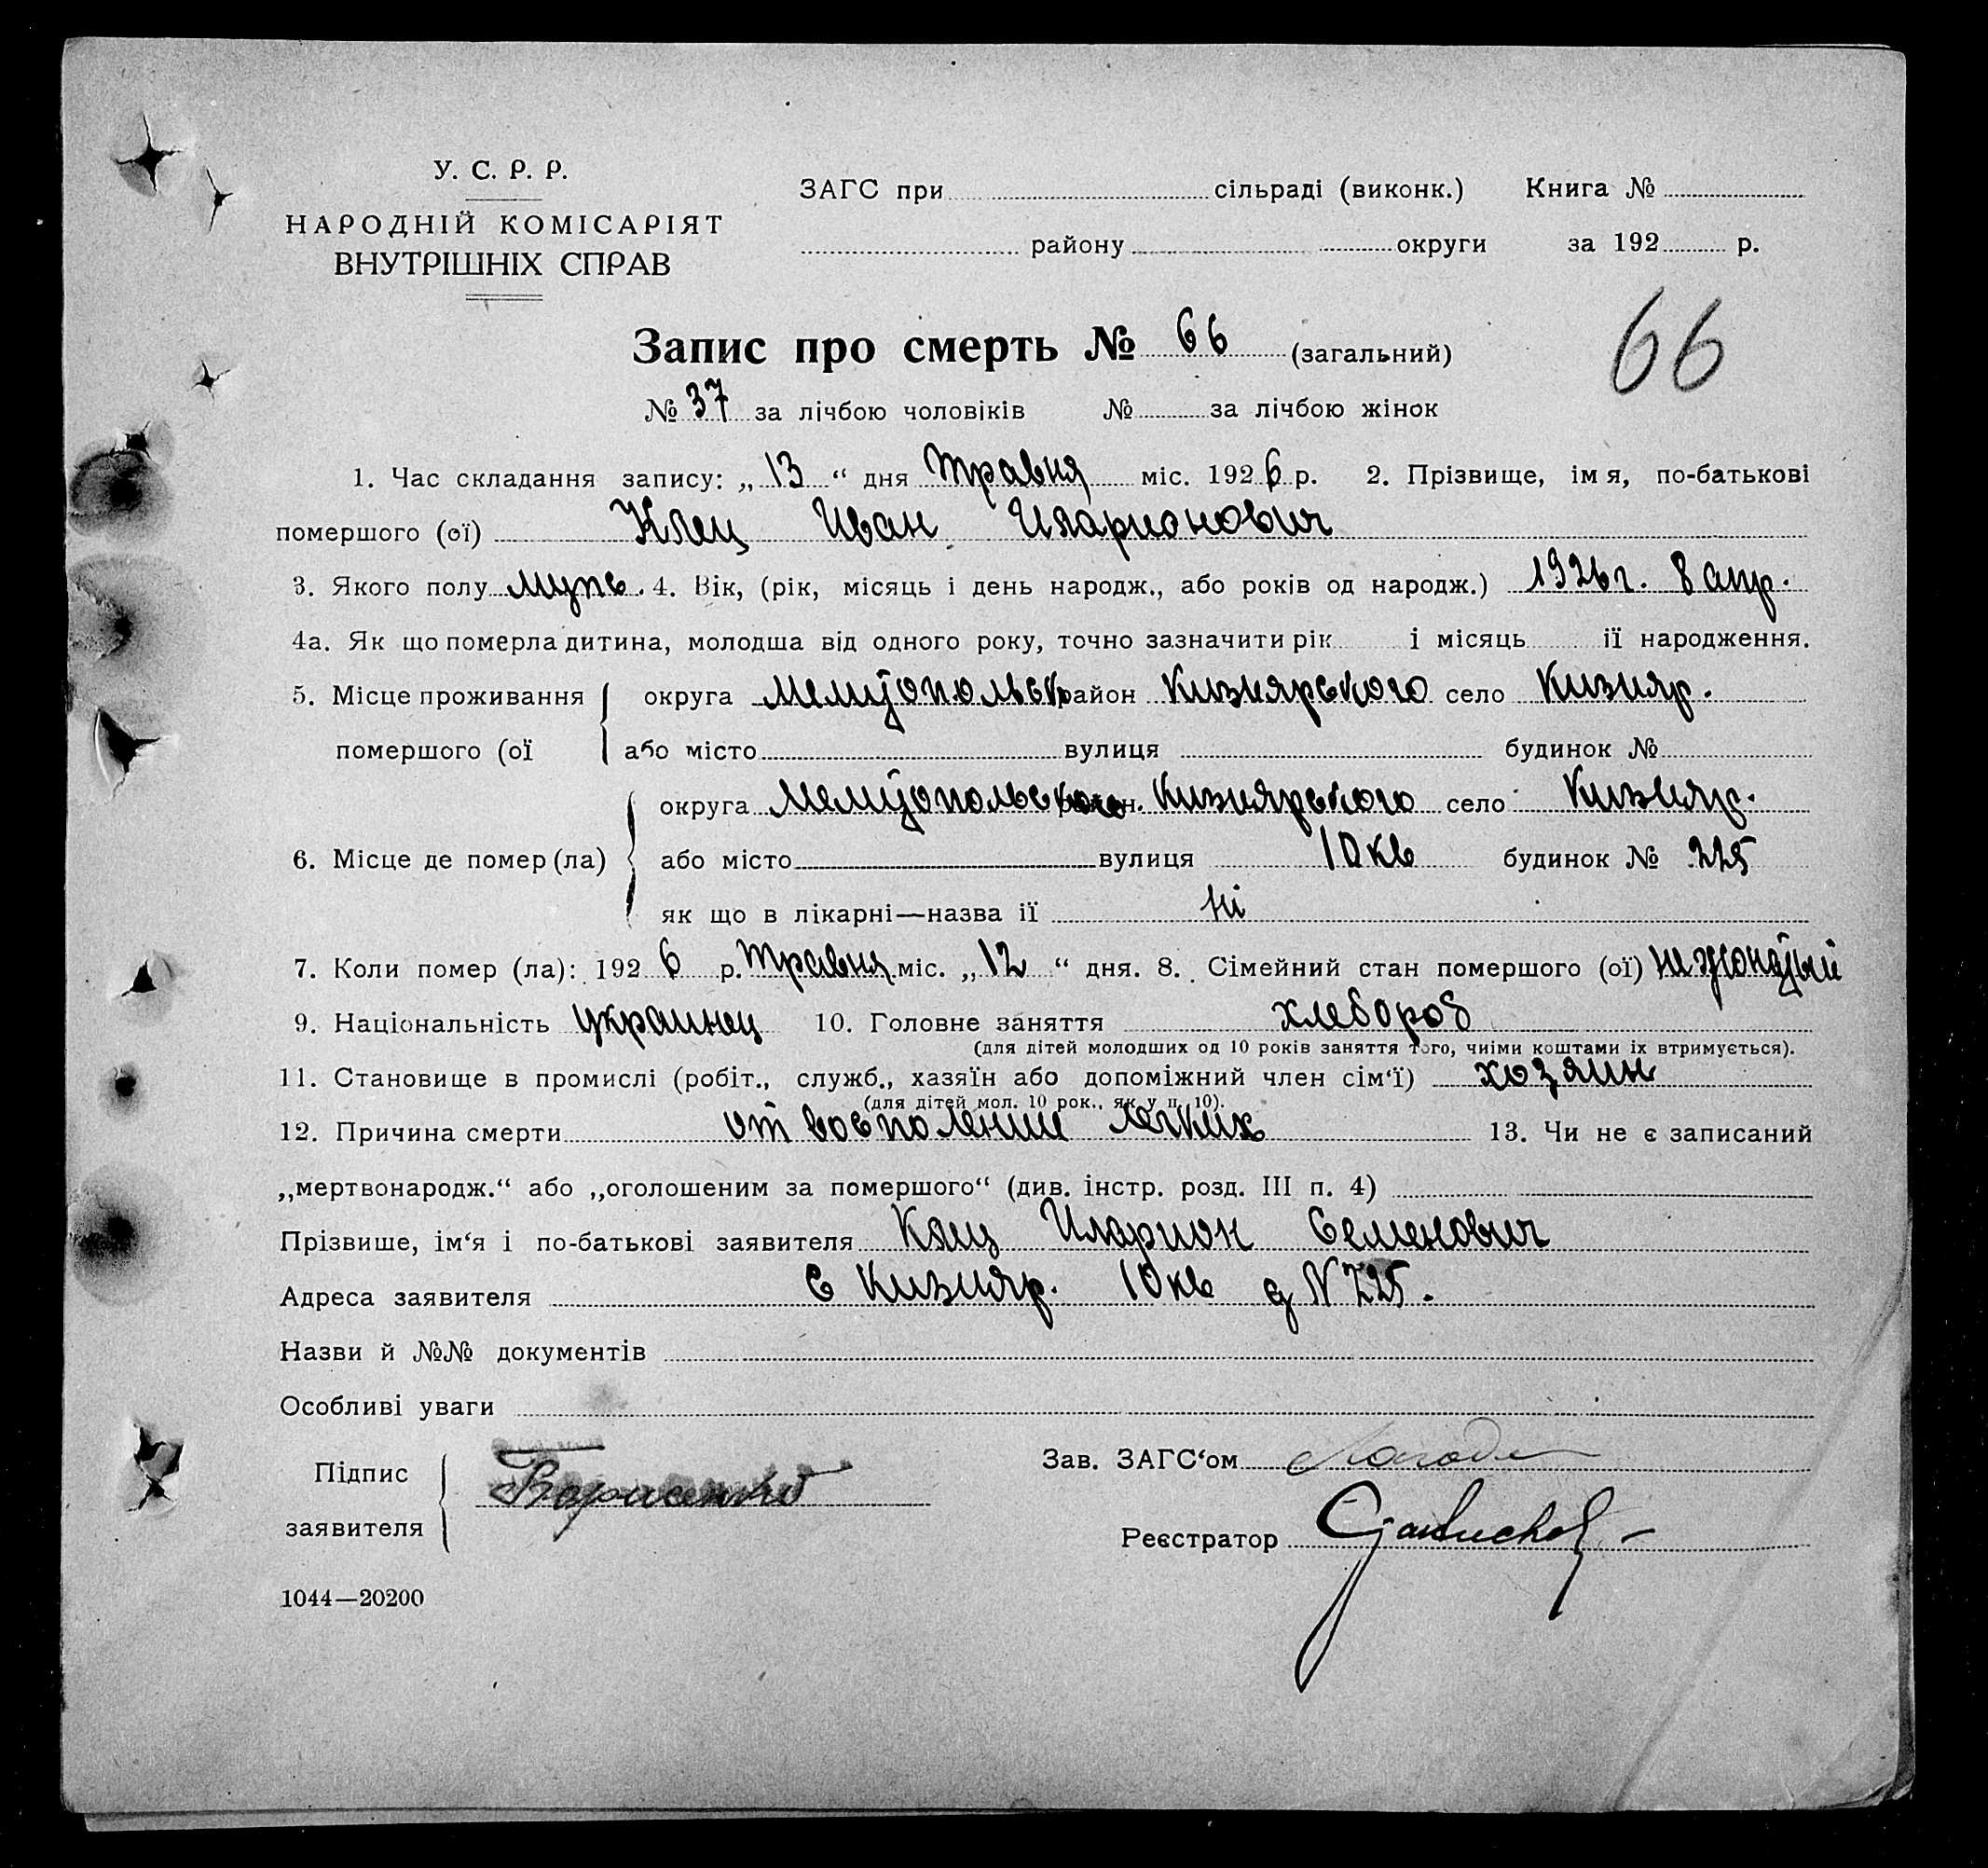 У. С. Р. Р.
НАРОДНІЙ КОМІСАРІЯТ
ВНУТРІШНІХ СПРАВ
ЗАГС при сільраді (виконк.) Книга №
району округи за 192 р.
66
Запис про смерть № 66 (загальний)
№ 37 за лічбою чоловіків № за лічбою жінок
1. Час складання запису: „13“ дня травня міс. 1926 р. 2. Прізвище, імя, по-батькові
помершого (ої) Клец Иван Иларионович
3. Якого полу муж. 4. Вік, (рік, місяць і день народж., або років од народж.) 1926 г. 8 апр.
4а. Як що померла дитина, молодша від одного року, точно зазначити рік і місяць її народження.
5. Місце проживання округа Мелітопольск район Кизиярського село Кизияр.
помершого (ої або місто вулиця будинок №
округа Мелітопольського район Кизиярського село Кизияр.
6. Місце де помер (ла) або місто вулиця 10 кв будинок № 225
як що в лікарні—назва її ні
7. Коли помер (ла): 1926 р. травня міс. „12“ дня. 8. Сімейний стан помершого (ої)
9. Національність украинец 10. Головне заняття хлебороб
(для дітей молодших од 10 років заняття того, чиїми коштами їх втримується).
11. Становище в промислі (робіт., служб., хазяїн або допоміжний член сім‘ї) хозяин
(для дітей мол. 10 рок., як у п. 10).
12. Причина смерти от воспаления легких 13. Чи не є записаний
„мертвонародж.“ або „оголошеним за помершого“ (див. інстр. розд. III п. 4)
Прізвише, ім‘я і по-батькові заявителя Клец Иларион Семенович
Адреса заявителя с Кизияр. 10 кв д N 225.
Назви й №№ документів
Особливі уваги
Підпис
заявителя Борисенко
Зав. ЗАГС‘ом
Реєстратор
1044—20200